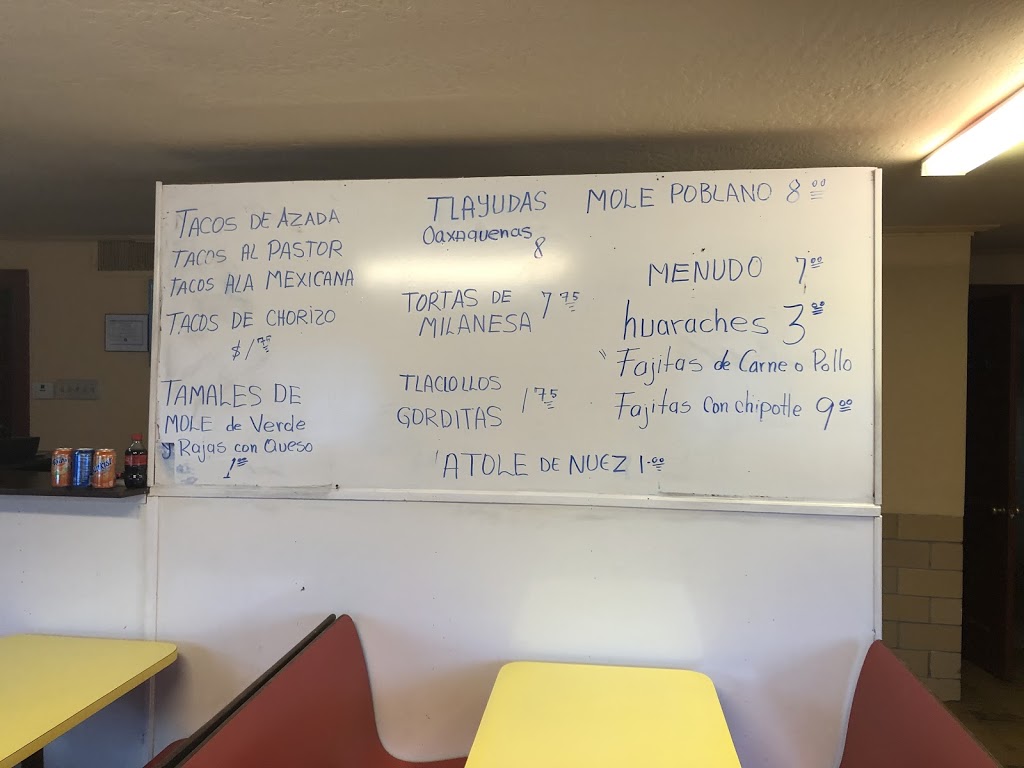 TACOS DE AZADA
TACOS AL PASTOR
TACOS ALA MEXICANA
TACOS DE CHORIZO
$1.75
TAMALES DE
MOLE de Verde
y Rajas con Queso
1.00
TLAYUDAS
Oaxaquenas
8
TORTAS DE
MILANESA 7.75
TLACIOLLOS
GORDITAS 1.75
ATOLE DE NUEZ 1.00
MOLE POBLANO 8.00
MEÑUDO 7.00
huaraches 3.00
Fajitas de Carne o Pollo
Fajitas con chipotle 9.00